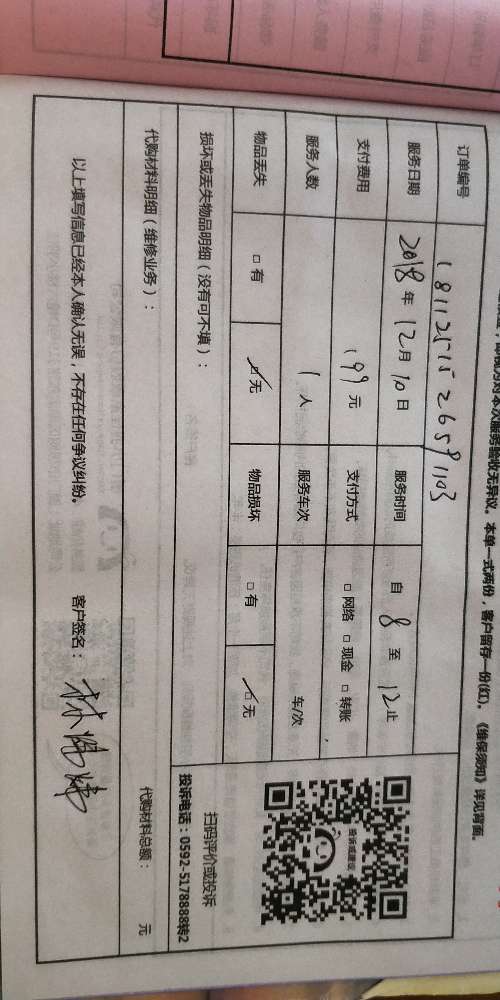 对本次服务验收无异议。本单一式两份，客户留存一份(红)。《维保须知》详见背面。
订单编号 1811251526591103
服务日期 2018年12月10日 服务时间 自8至12止
支付费用 199元 支付方式 □网络 □现金 □转账
服务人数 1人 服务车次 车/次
物品丢失 □有 ☑无 物品损坏 □有 ☑无
损坏或丢失物品明细（没有可不填）：
代购材料明细（维修业务）：
代购材料总额： 元
投诉或建议
扫码评价或投诉
投诉电话：0592-5178888转2
以上填写信息已经本人确认无误，不存在任何争议纠纷。 客户签名：